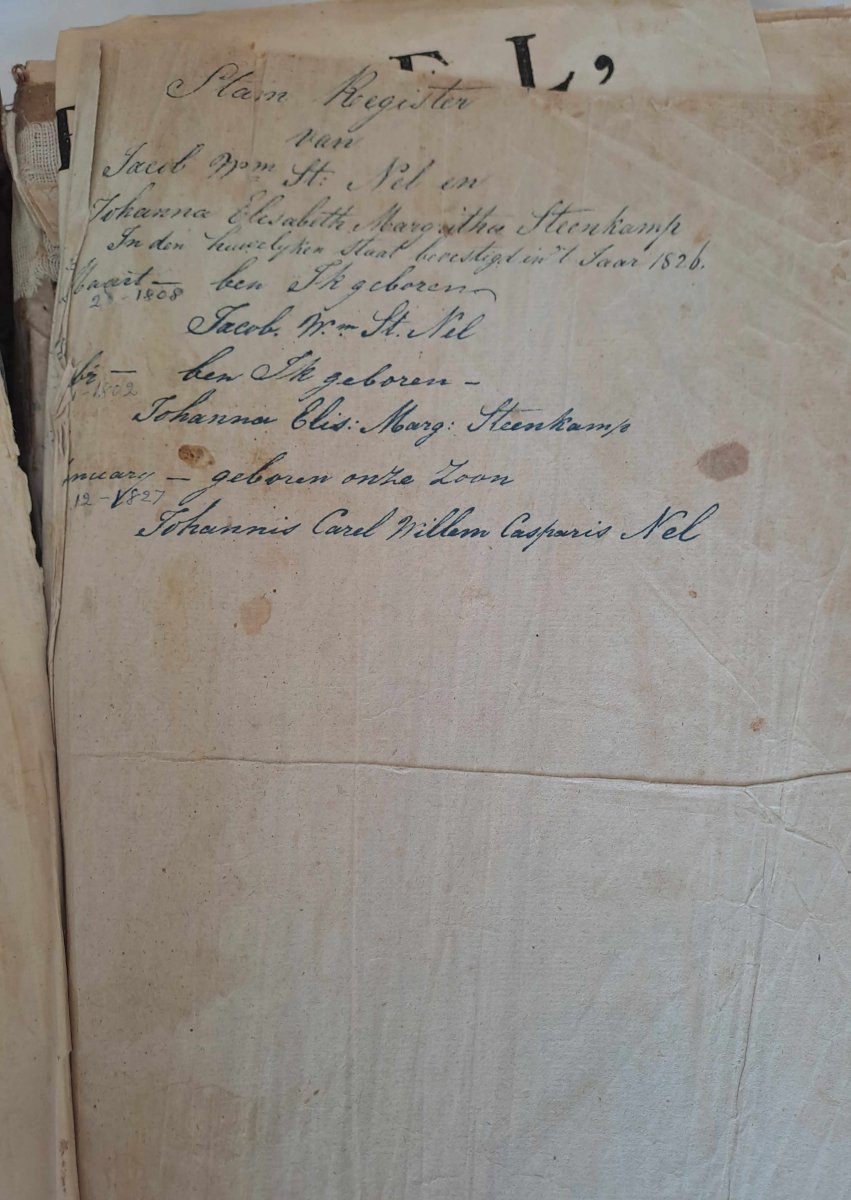 EL,
Stam Register
van
Jacob Wm St: Nel en
Johanna Elisabeth Margritha Steenkamp
In den huwelyken staat bevestigd in't Jaar 1826.
Maart — ben Ik geboren
1808
Jacob. Wm St. Nel
br — ben Ik geboren —
1802
Johanna Elis: Marg: Steenkamp
nuary — geboren onze Zoon
12 - 1827
Johannis Carel Willem Casparis Nel